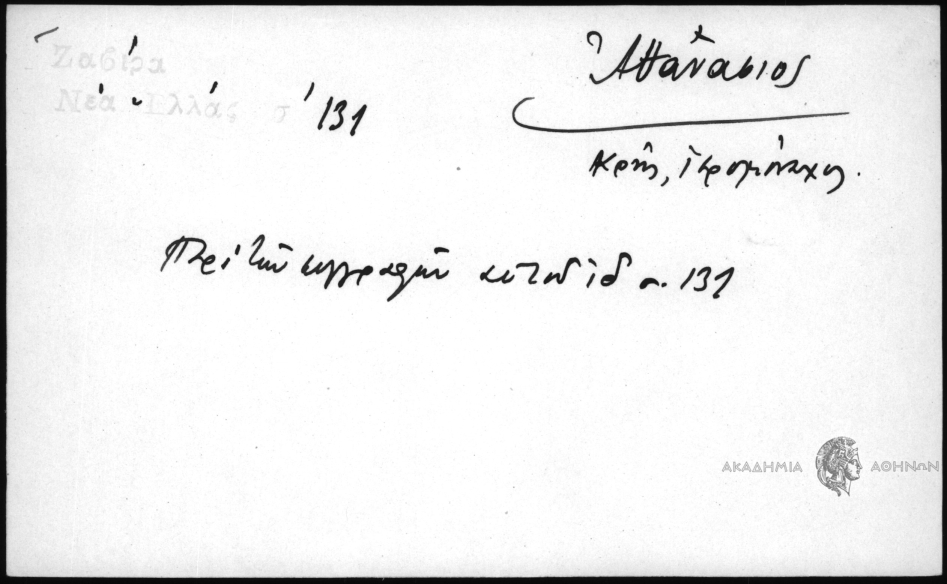 Ζαβίρα
Νέα Ἑλλάς σ 131
Ἀθανάσιος
Κρής, ἱερομόναχος.
Περὶ τῶν συγγραφῶν αὐτοῦ ἰδ σ. 131
ΑΚΑΔΗΜΙΑ ΑΘΗΝΩΝ